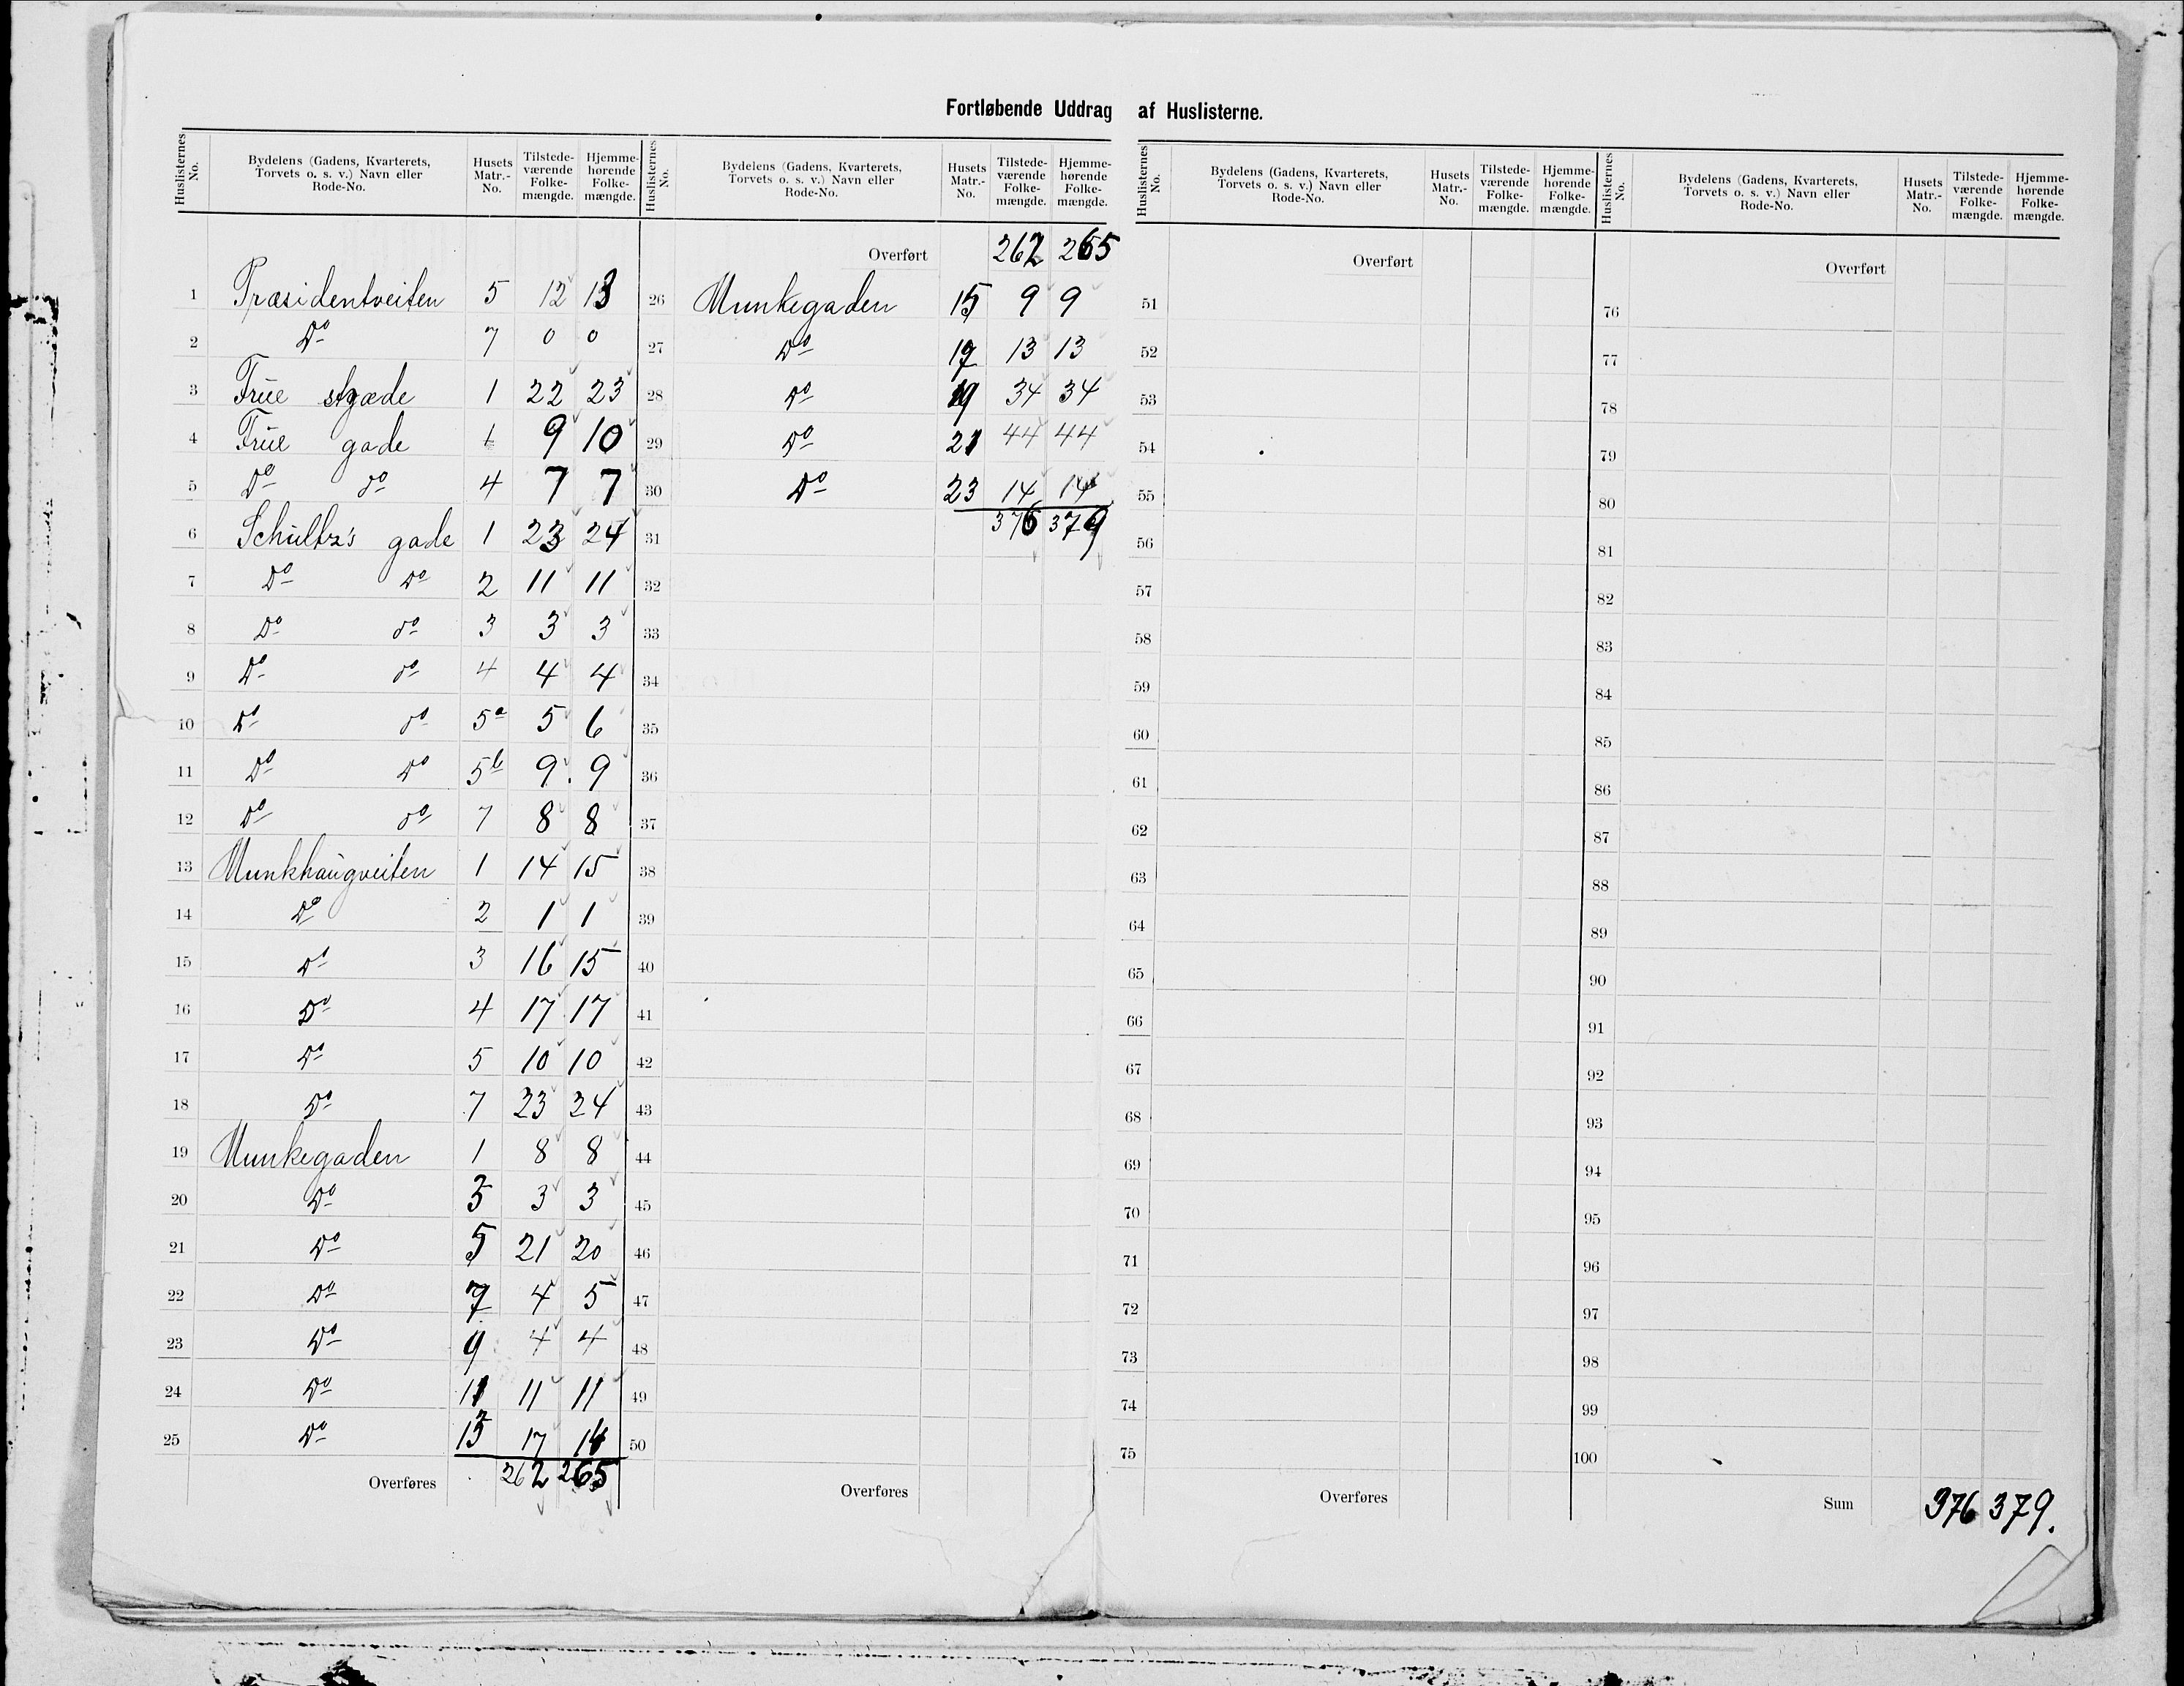 Fortløbende Uddrag af Huslisterne.
Huslisternes No. Bydelens (Gadens, Kvarterets, Torvets o. s. v.) Navn eller Rode-No. Husets Matr.-No. Tilstede-værende Folke-mængde. Hjemme-hørende Folke-mængde.
1 Præsidentveiten 5 12 13
2 Do 7 0 0
3 Frue stræde 1 22 23
4 Frue gade 1 9 10
5 Do do 4 7 7
6 Schultz's gade 1 23 24
7 Do Do 2 11 11
8 Do do 3 3 3
9 Do do 4 4 4
10 Do do 5a 5 6
11 Do Do 5b 9 9
12 Do do 7 8 8
13 Munkhaugveiten 1 14 15
14 Do 2 1 1
15 Do 3 16 15
16 Do 4 17 17
17 Do 5 10 10
18 Do 7 23 24
19 Munkegaden 1 8 8
20 Do 3 3 3
21 Do 5 21 20
22 Do 7 4 5
23 Do 9 4 4
24 Do 11 11 11
25 Do 13 17 14
Overføres 262 265
Huslisternes No. Bydelens (Gadens, Kvarterets, Torvets o. s. v.) Navn eller Rode-No. Husets Matr.-No. Tilstede-værende Folke-mængde. Hjemme-hørende Folke-mængde.
Overført 262 265
26 Munkegaden 15 9 9
27 Do 17 13 13
28 Do 19 34 34
29 Do 21 44 44
30 Do 23 14 14
31 376 379
32
33
34
35
36
37
38
39
40
41
42
43
44
45
46
47
48
49
50
Overføres
Huslisternes No. Bydelens (Gadens, Kvarterets, Torvets o. s. v.) Navn eller Rode-No. Husets Matr.-No. Tilstede-værende Folke-mængde. Hjemme-hørende Folke-mængde.
Overført
51
52
53
54
55
56
57
58
59
60
61
62
63
64
65
66
67
68
69
70
71
72
73
74
75
Overføres
Huslisternes No. Bydelens (Gadens, Kvarterets, Torvets o. s. v.) Navn eller Rode-No. Husets Matr.-No. Tilstede-værende Folke-mængde. Hjemme-hørende Folke-mængde.
Overført
76
77
78
79
80
81
82
83
84
85
86
87
88
89
90
91
92
93
94
95
96
97
98
99
100
Sum 376 379.